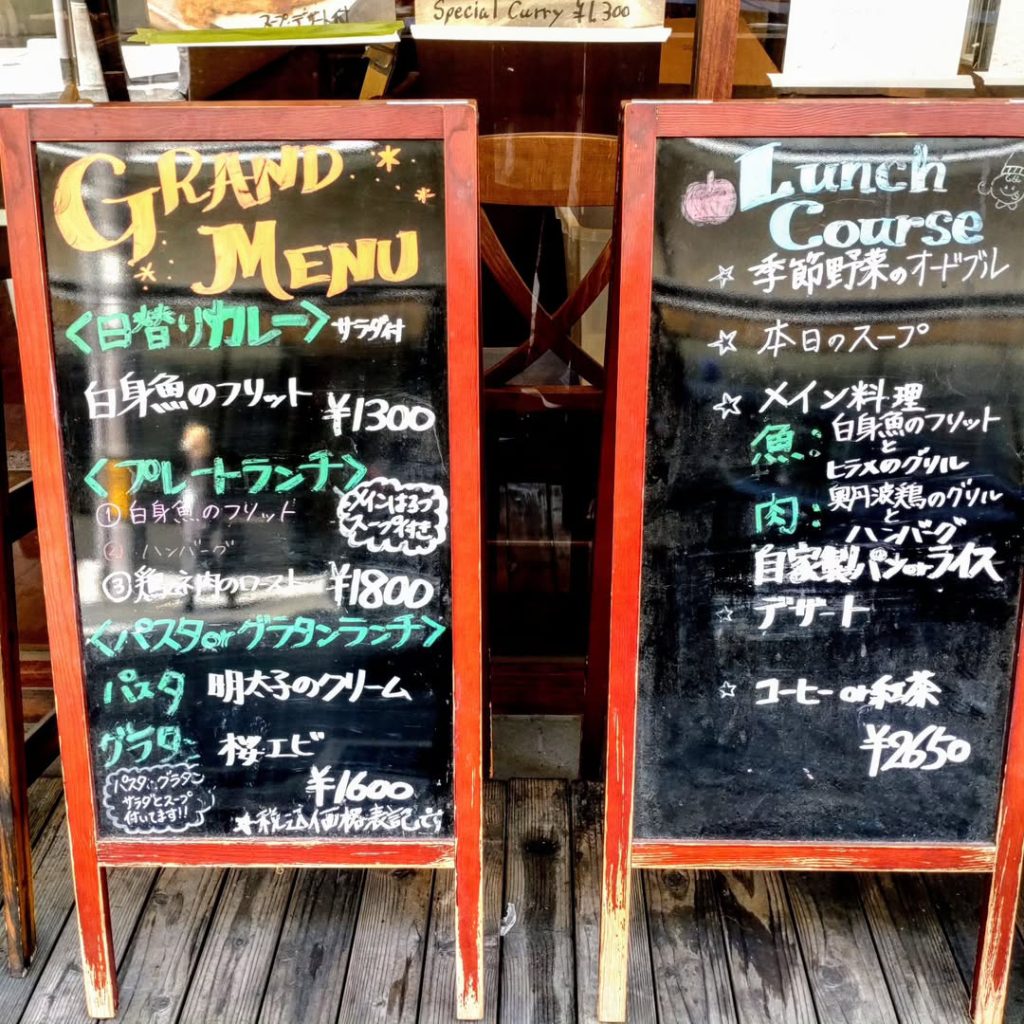 スープデザート付
Special Curry ¥1,300
GRAND
MENU
<日替りカレー> サラダ付
白身魚のフリット
¥1300
<プレートランチ>
メインはスープ
スープ付き
①白身魚のフリット
② ハンバーグ
③鶏ネ肉のロースト ¥1800
<パスタorグラタンランチ>
パスタ 明太子のクリーム
グラタン 桜エビ
¥1600
パスタ グラタン
サラダとスープ
付いてます!!
*税込価格表記です
Lunch
Course
☆ 季節野菜のオードブル
☆ 本日のスープ
☆ メイン料理
魚: 白身魚のフリット
と
ヒラメのグリル
肉: 奥丹波鶏のグリル
と
ハンバーグ
自家製パンorライス
☆ デザート
☆ コーヒーor紅茶
¥2650